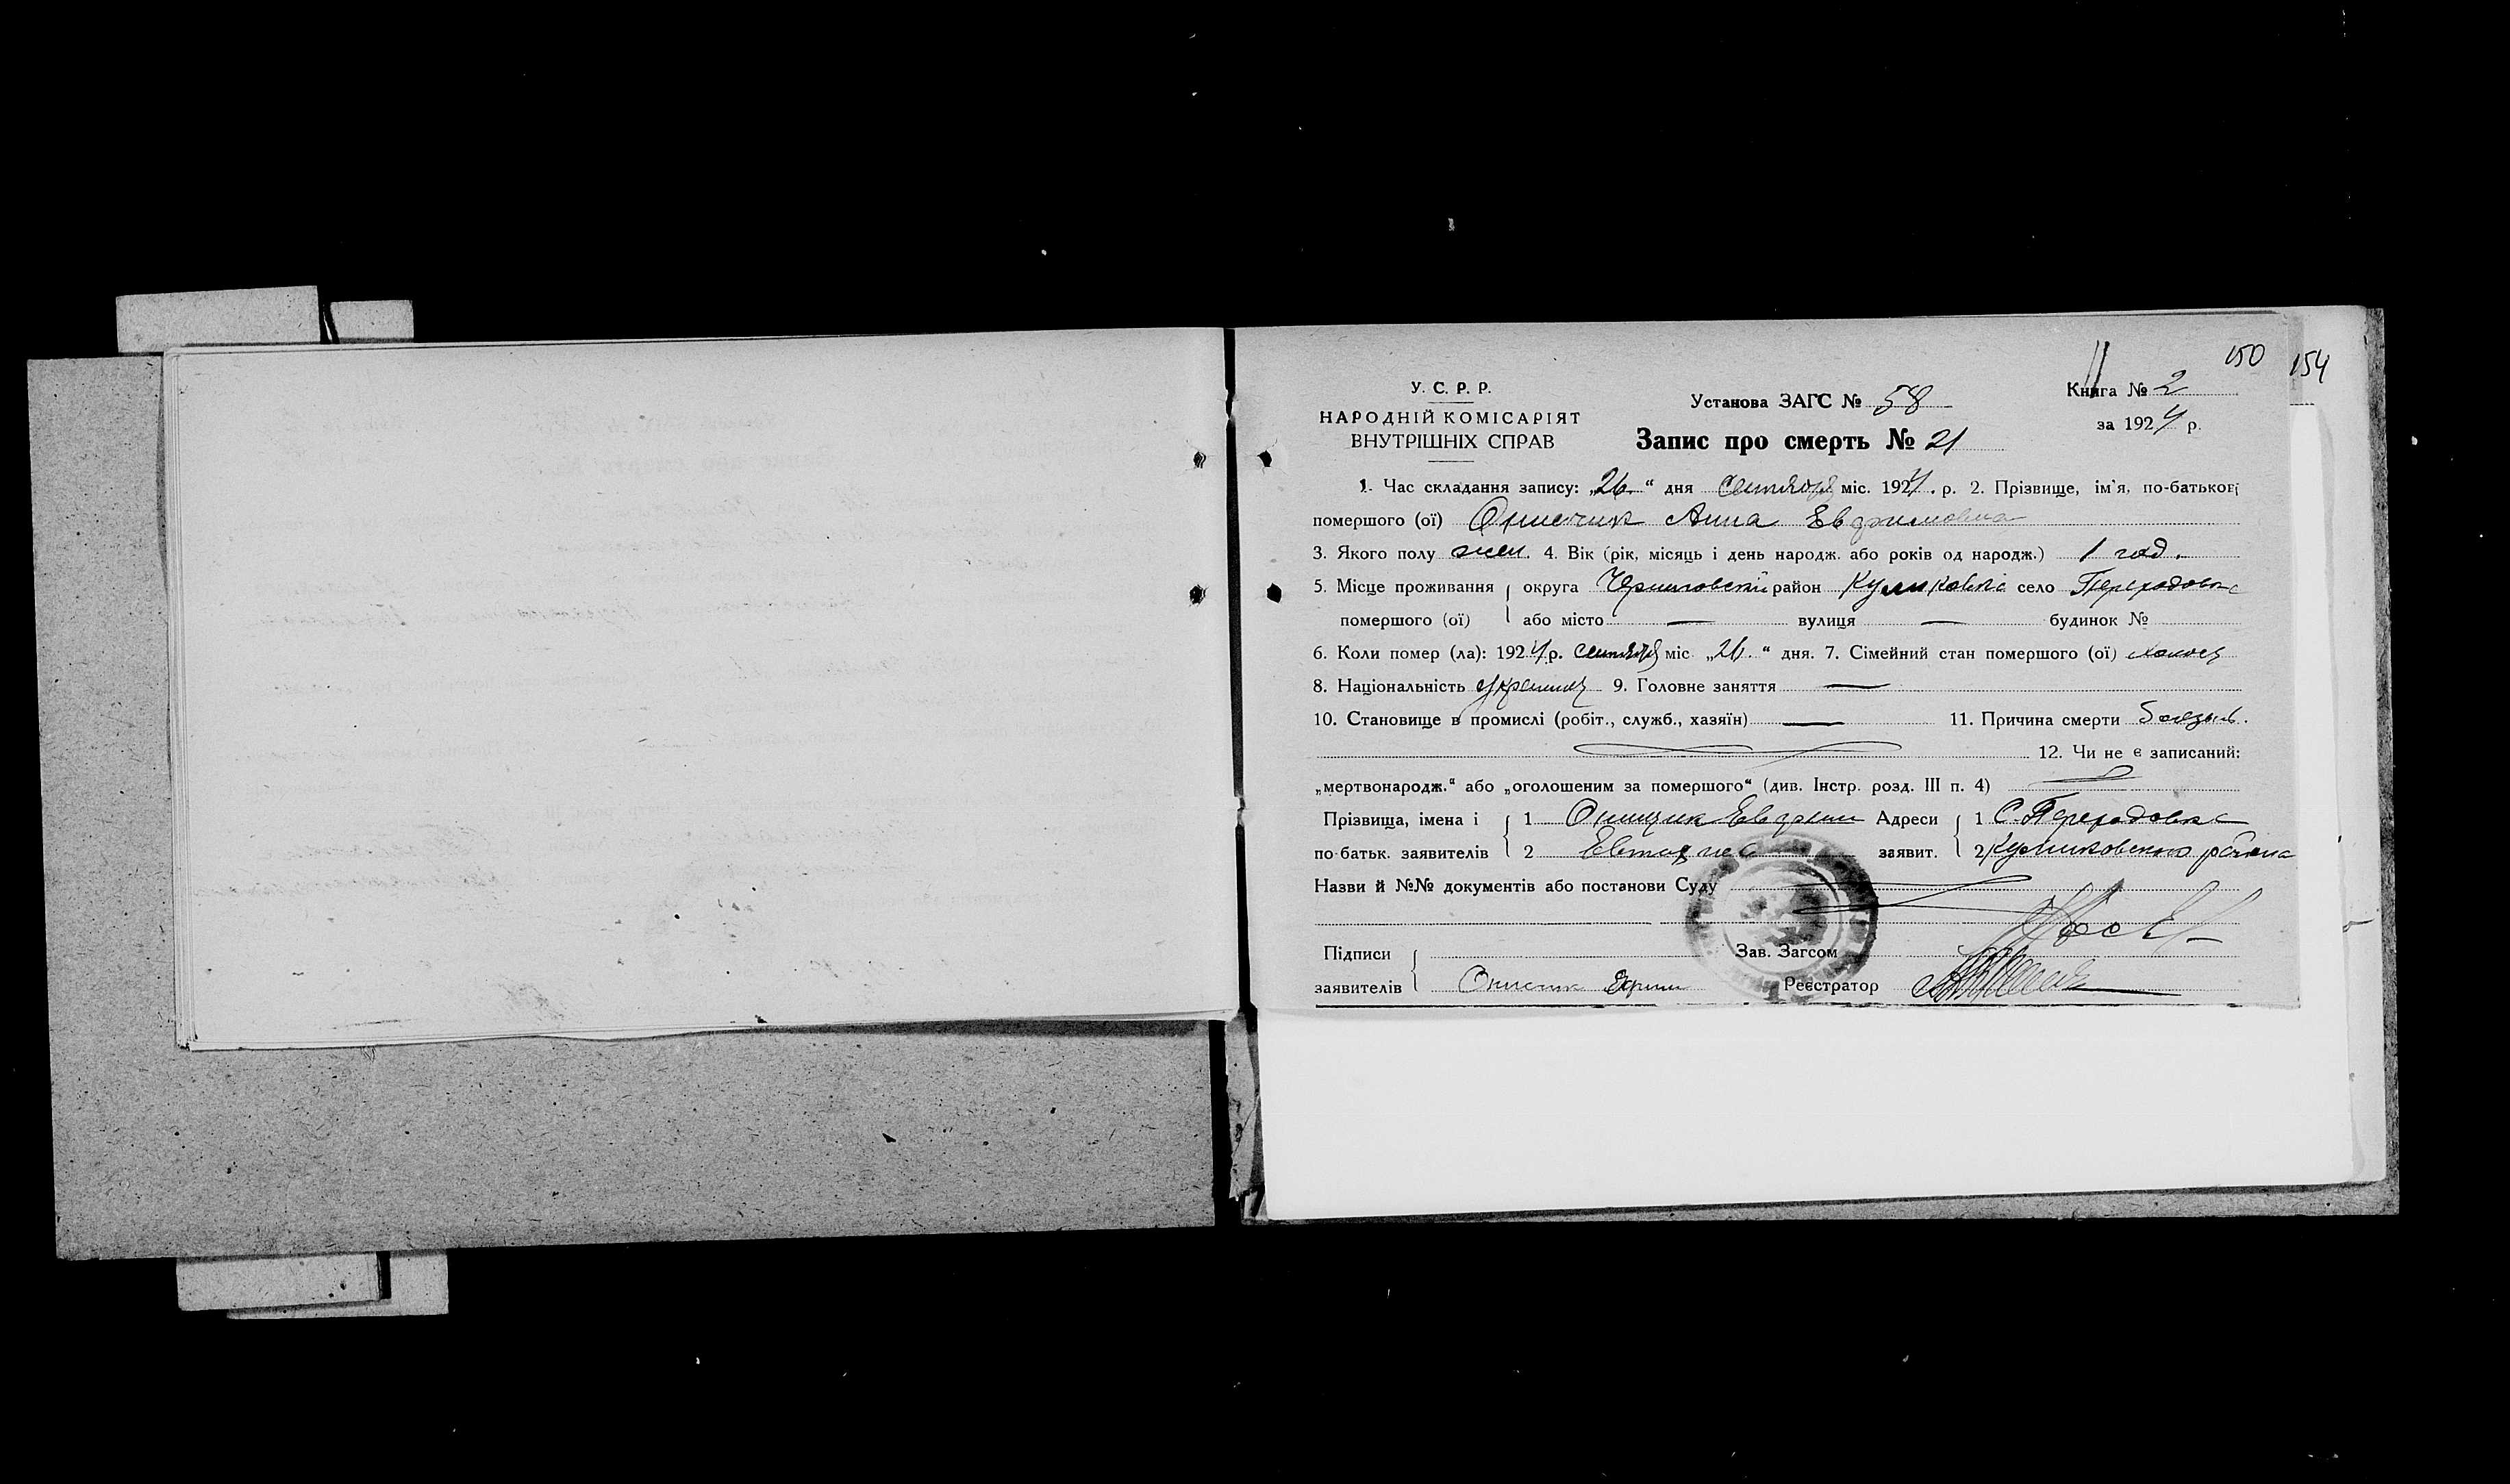 150 154
У. С. Р. Р.
НАРОДНІЙ КОМІСАРІЯТ
ВНУТРІШНІХ СПРАВ
Установа ЗАГС № 58
Запис про смерть № 21
Книга № 2
за 1924 р.
1. Час складання запису: „26“ дня Сентября міс. 1924. р. 2. Прізвище, ім'я, по-батькові
помершого (ої) Онисчик Анна Евфимовна
3. Якого полу жен. 4. Вік (рік, місяць і день народж. або років од народж.) 1 год.
5. Місце проживання округа Черниговский район Куликовка село Переходовка
помершого (ої) або місто — вулиця — будинок №
6. Коли помер (ла): 1924 р. сентября міс „26.“ дня. 7. Сімейний стан помершого (ої)
8. Національність 9. Головне заняття —
10. Становище в промислі (робіт., служб., хазяїн) — 11. Причина смерти болезнь.
12. Чи не є записаний:
„мертвонародж.“ або „оголошеним за помершого“ (див. Інстр. розд. III п. 4)
Прізвища, імена і 1 Онищик Евфим Адреси 1 С. Переходовка
по-батьк. заявителів 2 заявит. 2 Куликовского района
Назви й №№ документів або постанови Суду
Підписи Зав. Загсом
заявителів Онисчик Реєстратор